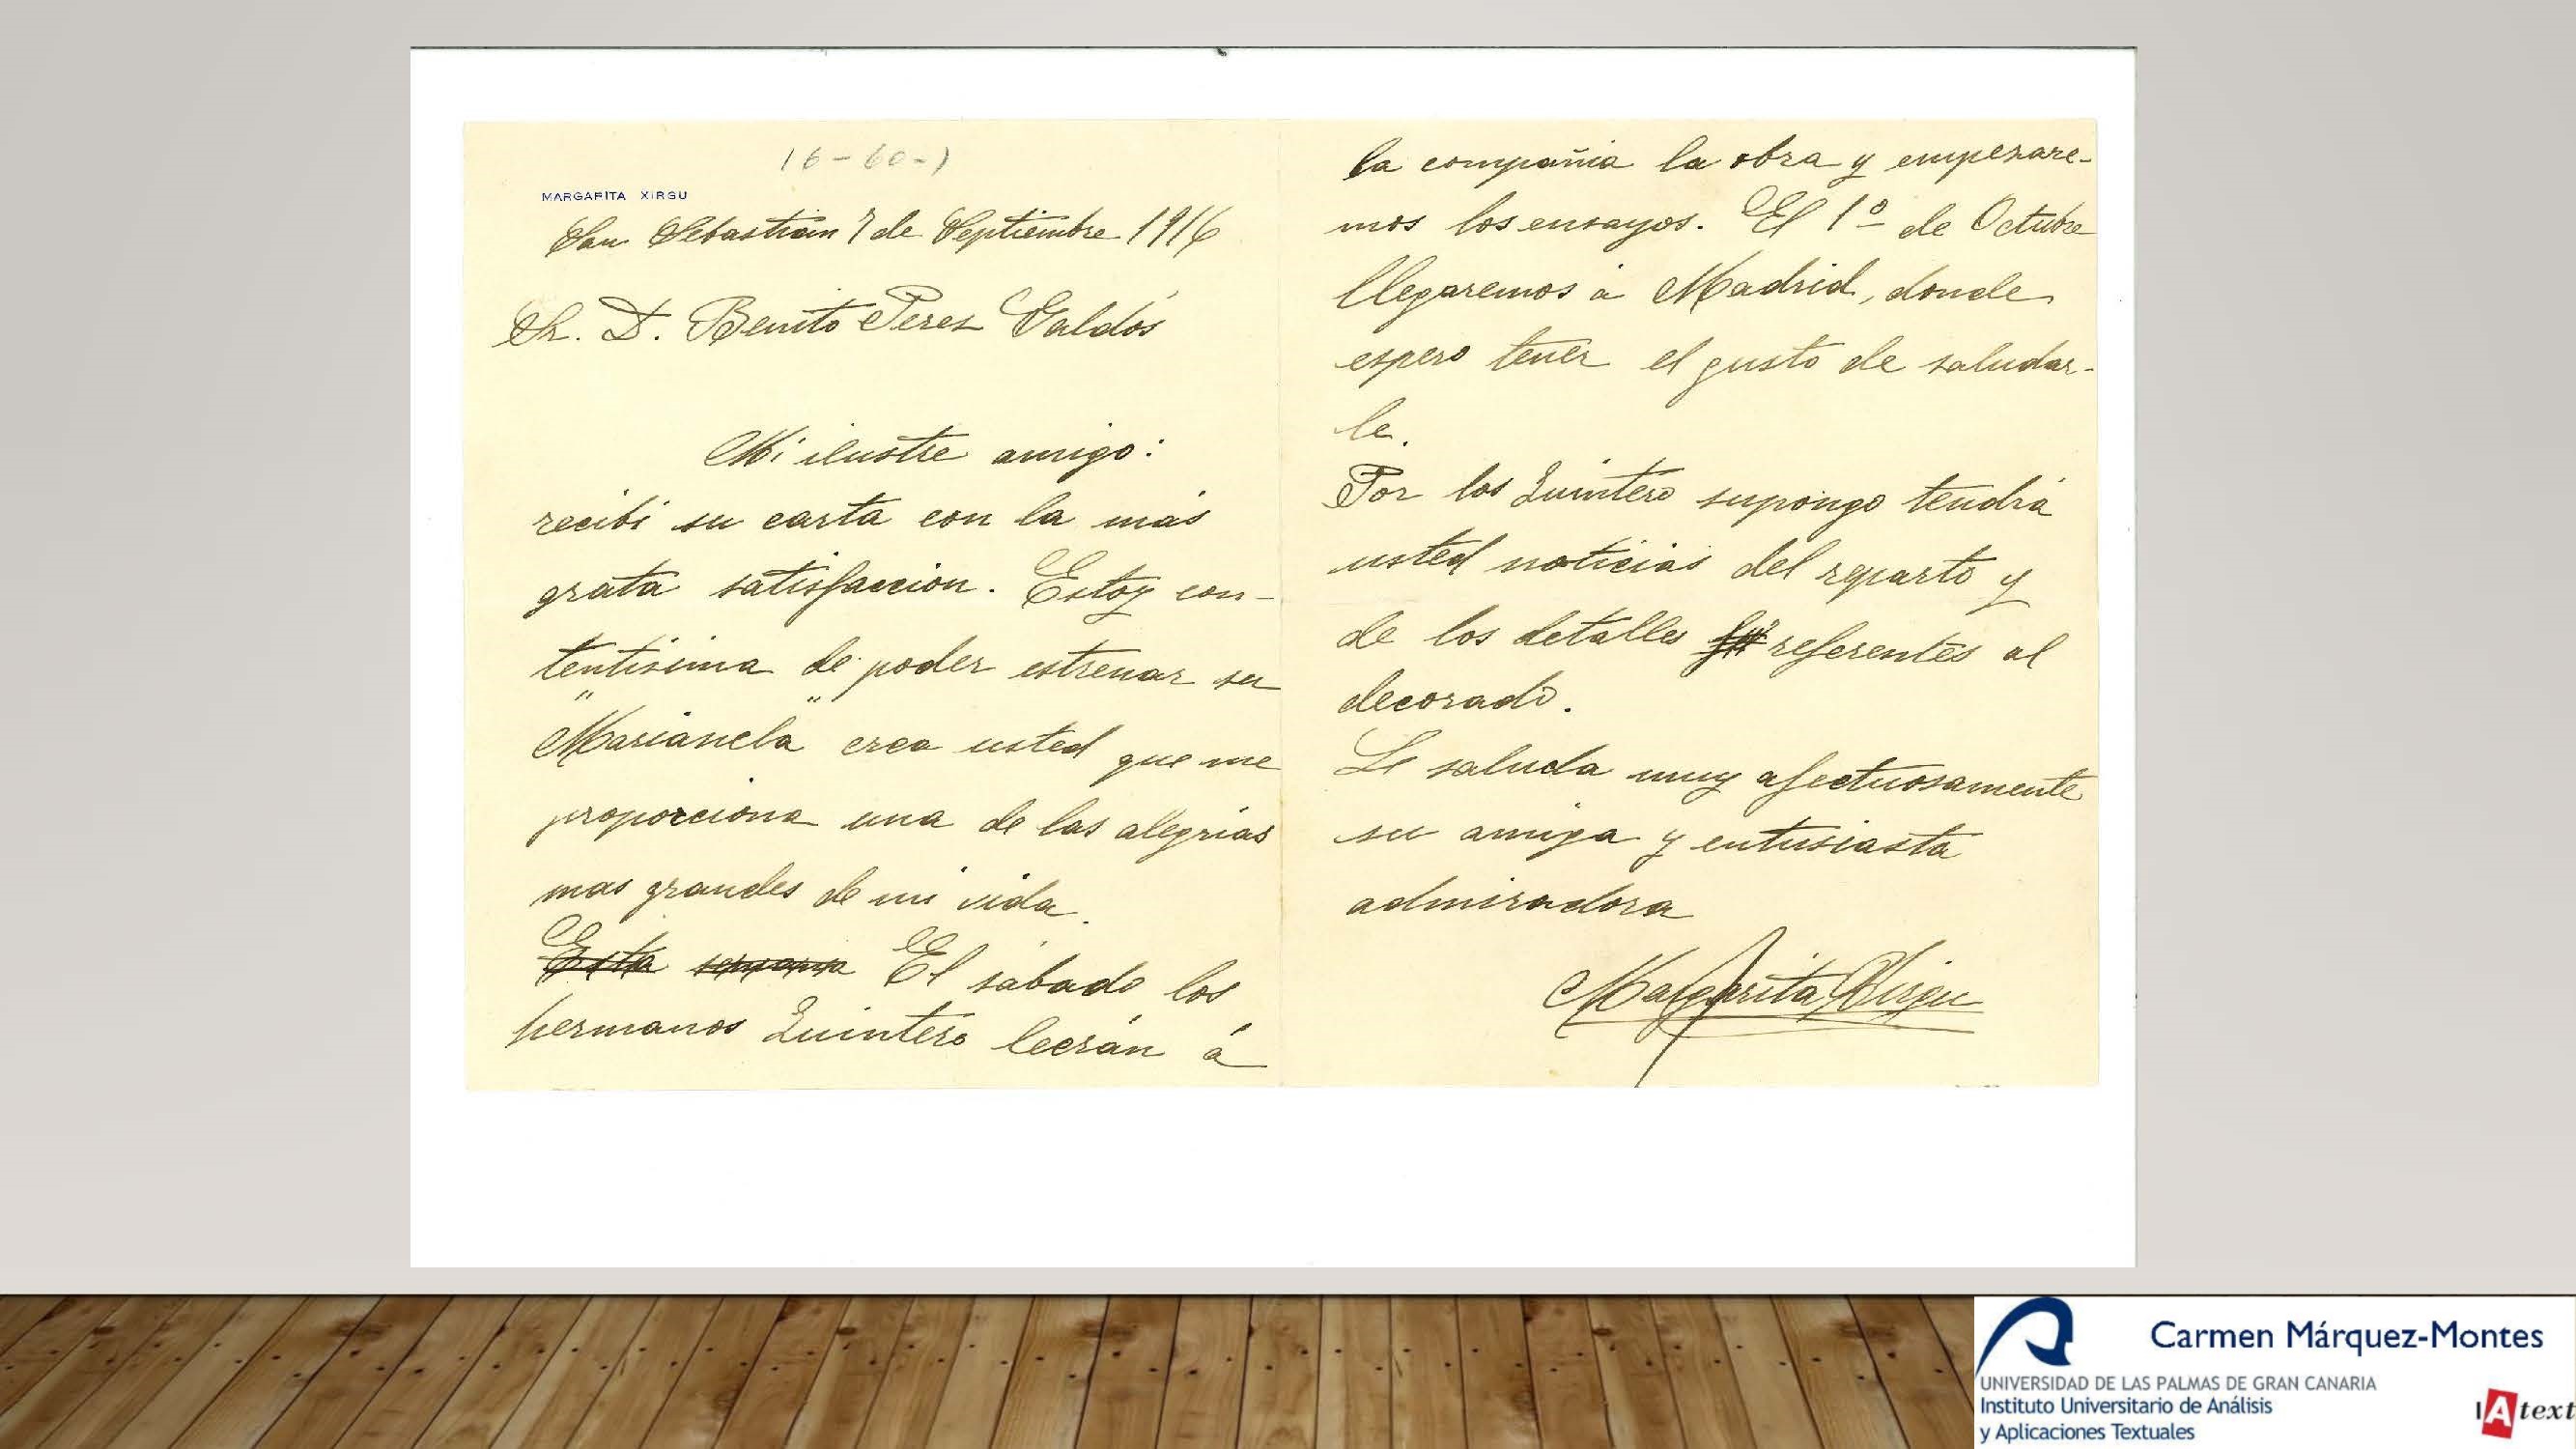 16-60-1
MARGARITA XIRGU
San Sebastián 7 de Septiembre 1916
Sr. D. Benito Perez Galdós
Mi ilustre amigo:
recibí su carta con la más
grata satisfaccion. Estoy con-
tentisima de poder estrenar su
"Marianela" crea usted que me
proporciona una de las alegrias
mas grandes de mi vida.
Esta semana El sábado los
hermanos Quintero leerán á
la compañia la obra y empezare-
mos los ensayos. El 1º de Octubre
llegaremos á Madrid, donde
espero tener el gusto de saludar-
le.
Por los Quintero supongo tendrá
usted noticias del reparto y
de los detalles referentes al
decorado.
Le saluda muy afectuosamente
su amiga y entusiasta
admiradora
Margarita Xirgu
Carmen Márquez-Montes
UNIVERSIDAD DE LAS PALMAS DE GRAN CANARIA
Instituto Universitario de Análisis
y Aplicaciones Textuales
IAtext